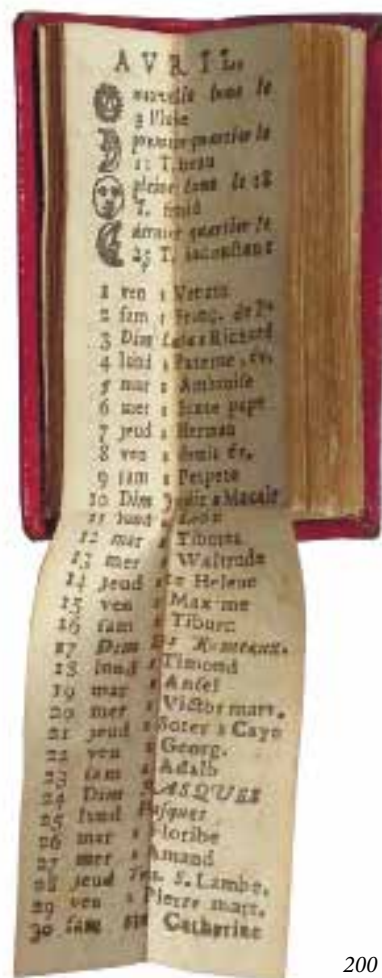 AVRIL.
nouvelle lune le
3 Pluie
premier quartier le
11 T. beau
pleine lune le 18
T. froid
dernier quartier le
25 T. inconstant
1 ven s Venant
2 sam s Franç. de
3 Dim s Richard
4 lund s Paterne, ev.
5 mar s Ambroise
6 mer s Sixte pape
7 jeud s Herman
8 ven s denis év.
9 sam s Perpete
10 Dim s Macaire
11 lund s Leon
12 mar s Tiburca
13 mer s Waltrude
14 jeud ste Helene
15 ven s Maxime
16 sam s Tiburc
17 Dim Des Rameaux.
18 lund s Timond
19 mar s Ansel
20 mer s Victor mart.
21 jeud s Soter s Cayo
22 ven s Georg.
23 sam s Adalb
24 Dim PASQUES
25 lund Pasques
26 mar s Floribe
27 mer s Amand
28 jeud S. Lambe.
29 ven s Pierre mart.
30 sam ste Catherine
200